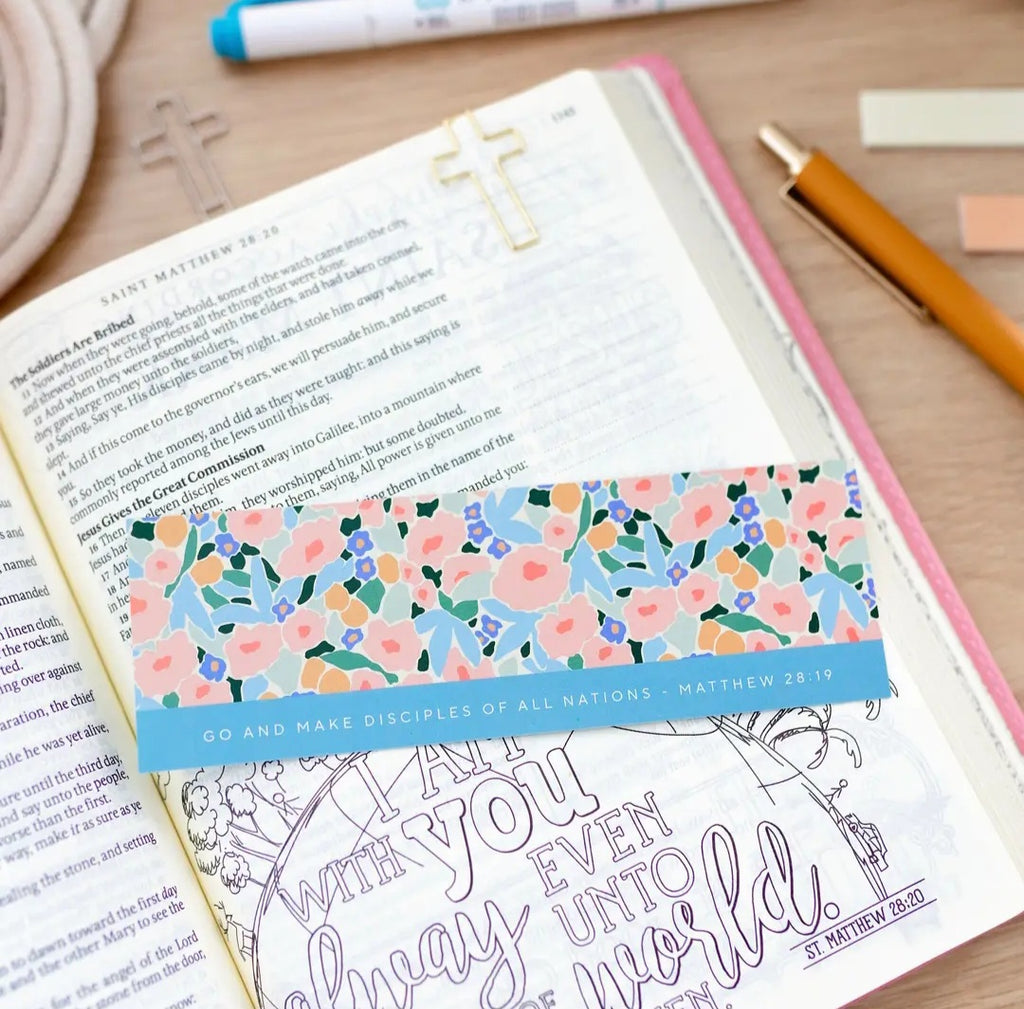 SAINT MATTHEW 28:20
1145
The Soldiers Are Bribed
11 Now when they were going, behold, some of the watch came into the city,
and shewed unto the chief priests all the things that were done.
12 And when they were assembled with the elders, and had taken counsel,
they gave large money unto the soldiers,
13 Saying, Say ye, His disciples came by night, and stole him away while we
slept.
14 And if this come to the governor's ears, we will persuade him, and secure
you.
15 So they took the money, and did as they were taught: and this saying is
commonly reported among the Jews until this day.
Jesus Gives the Great Commission
16 Then eleven disciples went away into Galilee, into a mountain where
Jesus had them.
17 And they worshipped him: but some doubted.
18 And to them, saying, All power is given unto me
in he
19 them in the name of the
manded you:
GO AND MAKE DISCIPLES OF ALL NATIONS - MATTHEW 28:19
I AM
WITH you
alway
EVEN
UNTO
world.
ST. MATTHEW 28:20
and
named
manded
linen cloth,
the rock and
ted.
ing over against
aration, the chief
hile he was yet alive,
ure until the third day,
and say unto the people,
worse than the first.
way, make it as sure as ye
ealing the stone, and setting
to dawn toward the first day
and the other Mary to see the
for the angel of the Lord
stone from the door,
now: